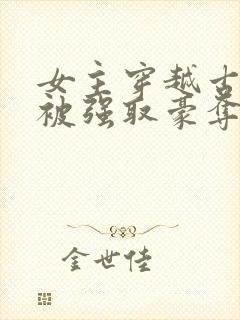 女主穿越古
被强取豪夺
金世佳